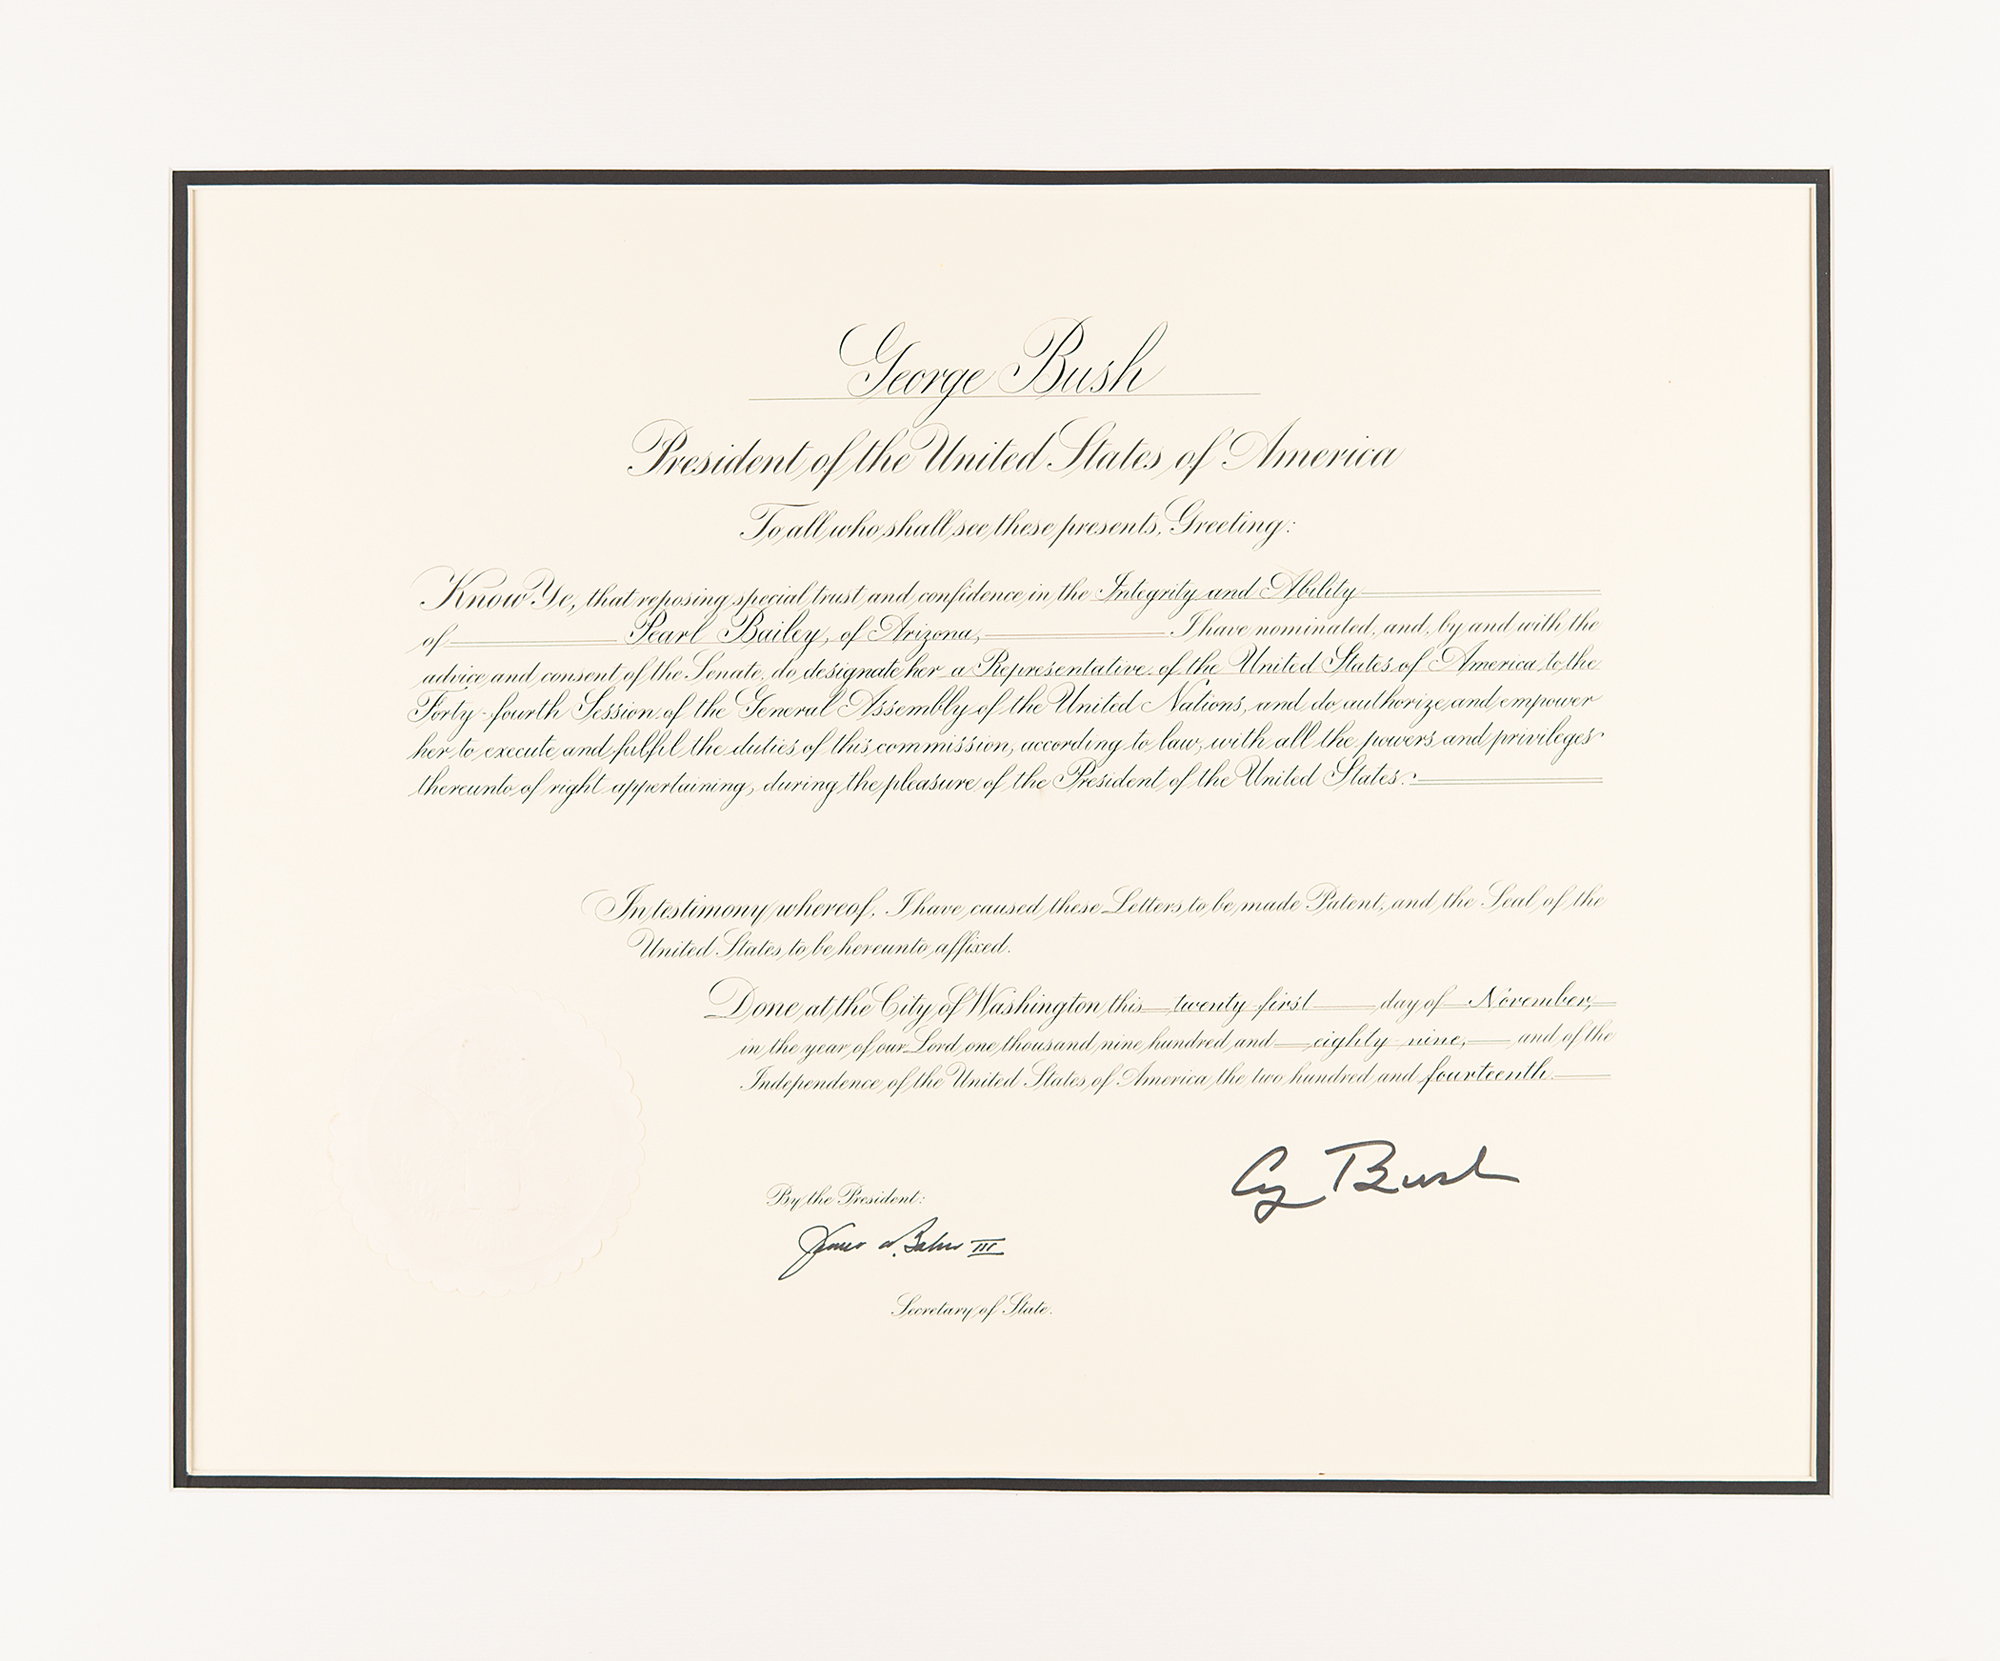 George Bush
President of the United States of America
To all who shall see these presents, Greeting:
Know Ye, that reposing special trust and confidence in the Integrity and Ability
of Pearl Bailey, of Arizona, I have nominated, and, by and with the
advice and consent of the Senate, do designate her a Representative of the United States of America to the
Forty-fourth Session of the General Assembly of the United Nations, and do authorize and empower
her to execute and fulfil the duties of this commission, according to law, with all the powers and privileges
thereunto of right appertaining, during the pleasure of the President of the United States.
In testimony whereof, I have caused these Letters to be made Patent, and the Seal of the
United States to be hereunto affixed.
Done at the City of Washington this twenty-first day of November,
in the year of our Lord one thousand nine hundred and eighty-nine, and of the
Independence of the United States of America the two hundred and fourteenth.
G Bush
By the President:
James A. Baker III
Secretary of State.